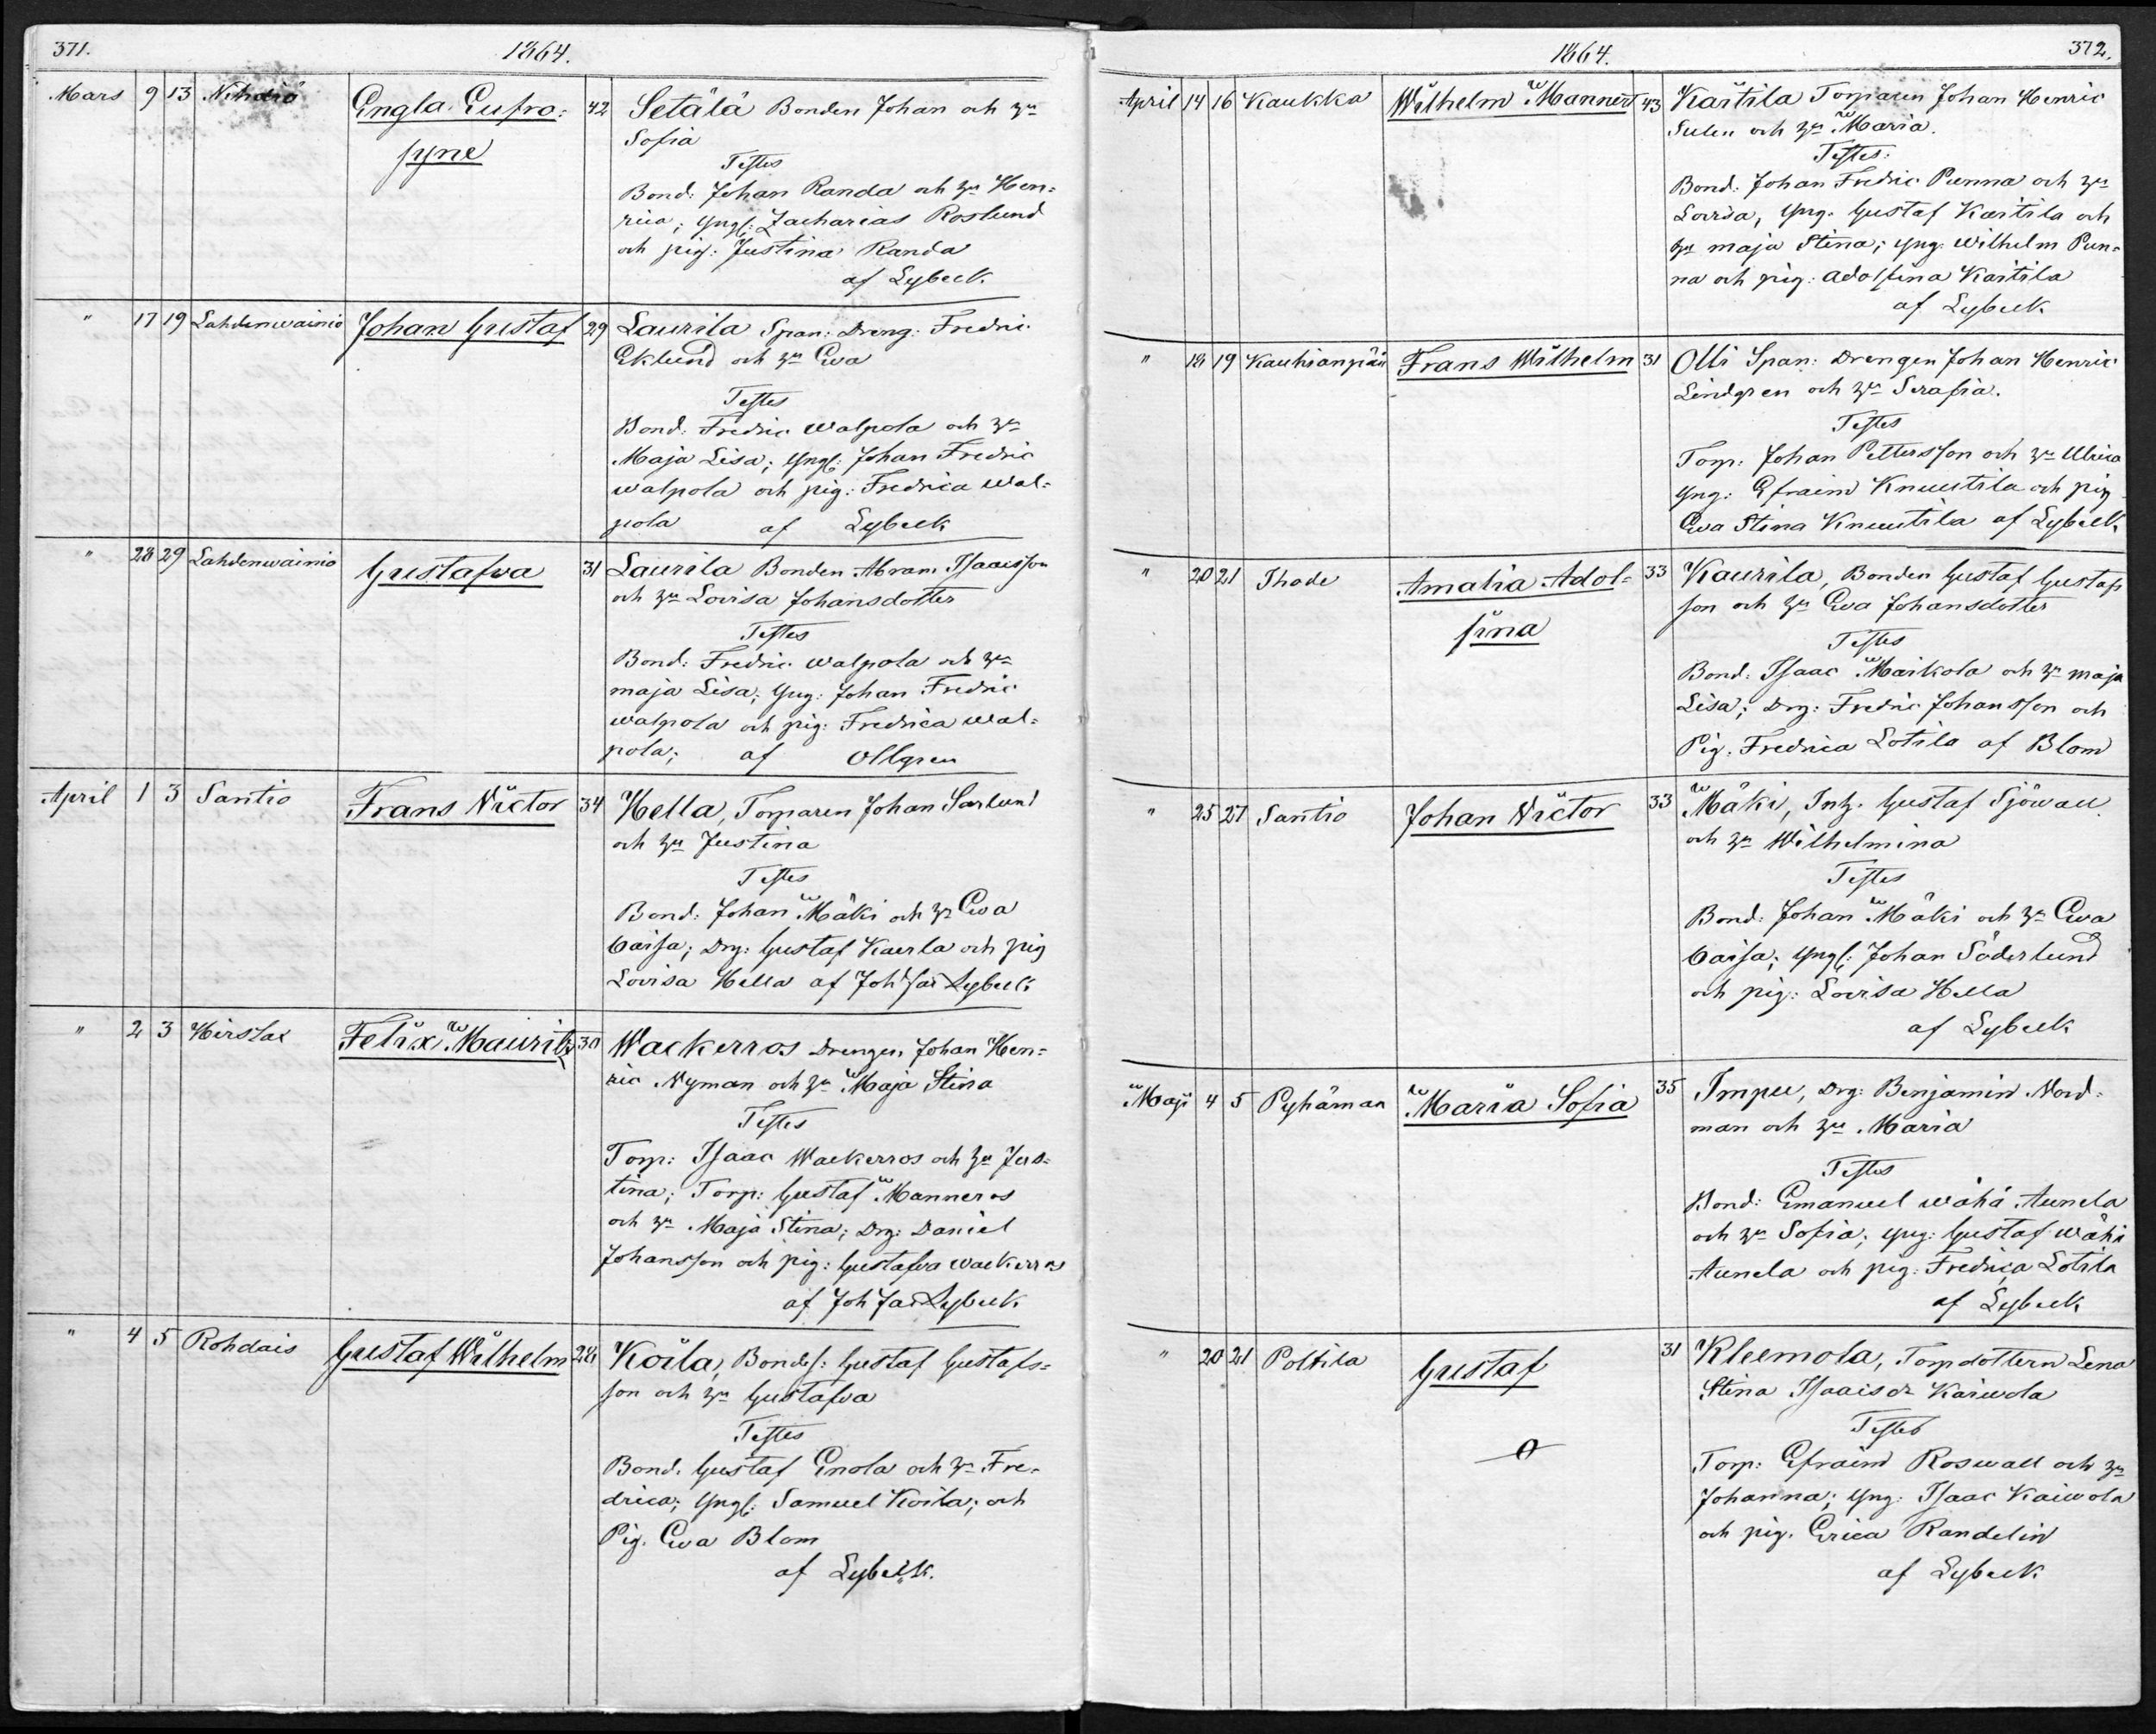 371.
1864.
Mars 9 13 Nihdiö Engla Eufro= 42 Setälä Bonden Johan och hu
syne
Sofia
Testes
Bond: Johan Randa och hu Hen=
rica; Yngl: Zacharias Roslund
och pig: Justina Randa
af Lybeck
" 17 19 Lahdenwainio Johan Gustaf 29 Laurila Span: Dreng: Fredric
Eklund och hu Eva
Testes
Bond: Fredric Walpola och hu
Maja Lisa; Yngl: Johan Fredric
Walpola och pig: Fredrica Wal=
pola af Lybeck
" 28 29 Lahdenwainio Gustafva 31 Laurila Bonden Abram Isaacsson
och hu Lovisa Johansdotter
Testes
Bond: Fredric Walpola och hu
Maja Lisa; Yng: Johan Fredric
Walpola och pig: Fredrica Wal=
pola; af Ollgren
April 1 3 Santio Frans Victor 34 Hella, Torparen Johan Sarlund
och hu Justina
Testes
Bond: Johan Mäki och hu Eva
Caisa; Drg: Gustaf Kaerla och pig
Lovisa Hella af Joh Lybeck
" 2 3 Hirslax Felix Mauritz 30 Wackerros Drengen Johan Hen=
ric Nyman och hu Maja Stina
Testes
Torp: Isaac Wackerros och hu Jus=
tina; Torp: Gustaf Manneros
och hu Maja Stina; Drg: Daniel
Johansson och pig: Gustafva Wackerros
af Joh Jac Lybeck
" 4 5 Rohdais Gustaf Wilhelm 28 Koila, Bondes: Gustaf Gustafs=
son och hu Gustafva
Testes
Bond. Gustaf Enola och hu Fre=
drica; Yngl: Samuel Koila; och
Pig. Eva Blom
af Lybeck.
1864.
372.
April 14 16 Kaukka Wilhelm Mannert 43 Kaitila Torparen Johan Henric
Sulen och hu Maria.
Testes:
Bond: Johan Fredric Punna och hu
Lovisa, Yng. Gustaf Kaitila och
hu Maja Stina; Yng: Wilhelm Pun=
na och pig: Adolfina Kaitila
af Lybeck
" 18 19 Kauhianpää Frans Wilhelm 31 Olli Span: Drengen Johan Henric
Lindgren och hu Serafia.
Testes
Torp: Johan Pettersson och hu Ulrica
Yng: Efraim Knuutila och pig
Eva Stina Knuutila af Lybeck
" 20 21 Ihode Amalia Adol= 33 Kaurila, Bonden Gustaf Gustafs
fina
son och hu Eva Johansdotter
Testes
Bond: Isaac Maikola och hu Maja
Lisa; Drg: Fredric Johansson och
Pig. Fredrica Lotila af Blom
" 25 27 Santio Johan Victor 33 Mäki, Inh. Gustaf Sjöwall
och hu Wilhelmina
Testes
Bond: Johan Mäki och hu Eva
Caisa; Yngl: Johan Söderlund
och pig: Lovisa Hella
af Lybeck
Maji 4 5 Pyhämaa Maria Sofia 35 Impu, Drg: Benjamin Nord=
man och hu Maria
Testes
Bond: Emanuel Wähä Aunela
och hu Sofia; Yng: Gustaf Wähä
Aunela och pig: Fredrica Lotila
af Lybeck
" 20 21 Poltila Gustaf 31 Kleemola, Torpdottern Lena
Stina Isaacsdr Kaiwola
Testes
Torp: Efraim Roswall och hu
Johanna; Yng: Isaac Kaiwola
och pig. Erica Randelin
af Lybeck